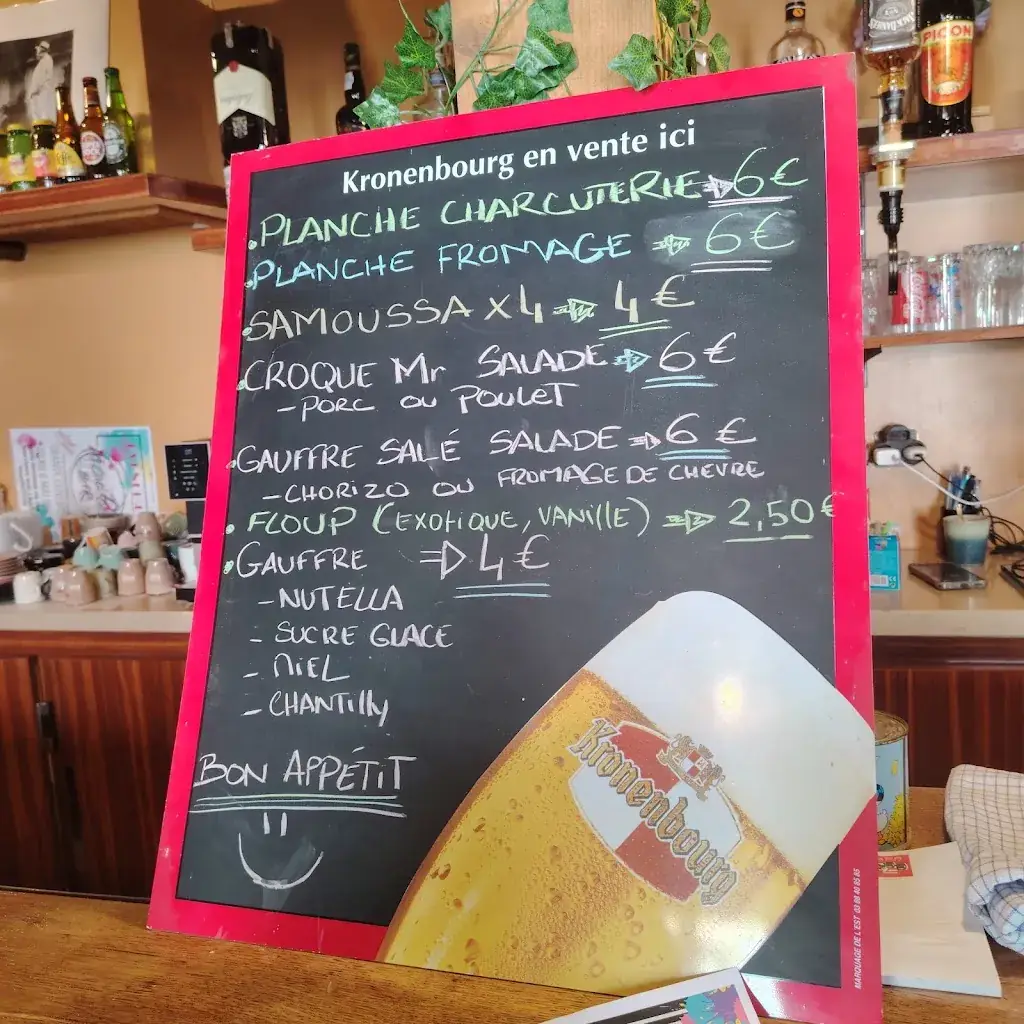 Kronenbourg en vente ici
PLANCHE CHARCUTERIE 6€
PLANCHE FROMAGE 6€
SAMOUSSA x4 4€
CROQUE Mr SALADE 6€
- PORC OU POULET
GAUFFRE SALÉ SALADE 6€
- CHORIZO OU FROMAGE DE CHEVRE
FLOUP (EXOTIQUE, VANILLE) 2,50€
GAUFFRE 4€
- NUTELLA
- SUCRE GLACE
- MIEL
- CHANTILLY
BON APPÉTIT
Kronenbourg
MARQUAGE DE L'EST 03 88 40 85 85
PICON